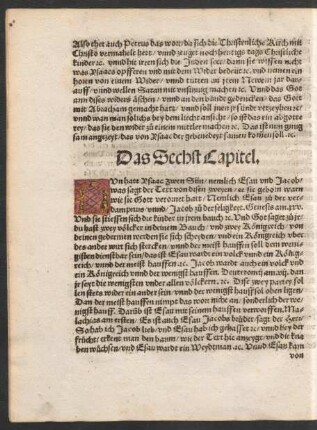 Also thet auch Petrus das wort/ da sich die Christenliche Kirch mit
Christo vermahelt hatt/ vnnd zeuget noch heutigs tags Christliche
kinder ꝛc. vnnd hie irren sich die Juden seer/ dann sie wissen nicht
was Ysaacs opfferen vnd mit dem Wider bedeüt ꝛc. vnd nemen ein
horen von einem Wider/ vnnd tütten an jrem Newen jar dar-
auff/ vnnd wellen Satan mit vnsinnig machen ꝛc. Vnnd das Got
ann dises widers äschen/ vnnd an den bande gedencken/ das Got
mit Abraham gemacht hatt/ vnnd soll jnen jr sünde vertzeyhen ꝛc.
vnnd wan man solichs bey dem liecht ansicht/ so ist das ein abgotte
rey/ das sie den wider zů einem mittler machen ꝛc. Das ist nun gnůg
sam angezeigt/ das von Ysaac der gebenedeyt samen komen soll ꝛc.
Das Sechst Capitel.
NUn hatt Ysaac zwen Sün/ nemlich Esau vnd Jacob/
was sagt der Text von disen zweyen/ ee sie geborn warn
wie sie Got verornt hatt/ Nemlich Esau zů der ver-
dampnus vnnd Jacob zů der seligkeyt. Genesis am. xxv.
Vnd sie stiessen sich die kinder in jrem bauch ꝛc. Vnd Got saget zů jr
du hast zwey völcker in deinem Bauch/ vnd zwey Königreich/ von
deinen gedermen werden sie sich scheyden/ vnd ein Königreich vber
des ander wirt sich stercken/ vnnd der meist hauffen soll dem we-
nigisten dienstbar sein/ das ist Esau ward ein volck vnd ein König-
reich/ vnnd der meist hauffen ꝛc. Jacob warde auch ein volck vnd
ein Königreich vnnd der wenigst hauffen. Deuteronomij am. vij. dan
jr seyt die wenigsten vnder allen völckern. ꝛc. Dise zwey partey sol
len stets wider ein ander sein/ vnd der wenigst hauffen sol oben ligen
Dan der meist hauffen nimpt das wort nicht an/ sonder lich der we-
nigst hauff. Darüb ist Esau mit seinem hauffen verworffen/ Ma-
lachias am ersten/ Es ist auch Esau Jacobs brůder/ sagt der Herr/
So hab ich Jacob lieb/ vnd Esau hab ich gehasset ꝛc/ vnnd bey der
frücht/ erkent man den baum/ wie der Text hie anzeygt/ vnd die kna
ben wůchsen/ vnd Esau wardt ein Weydtman ꝛc. Vnnd Esau kam
von